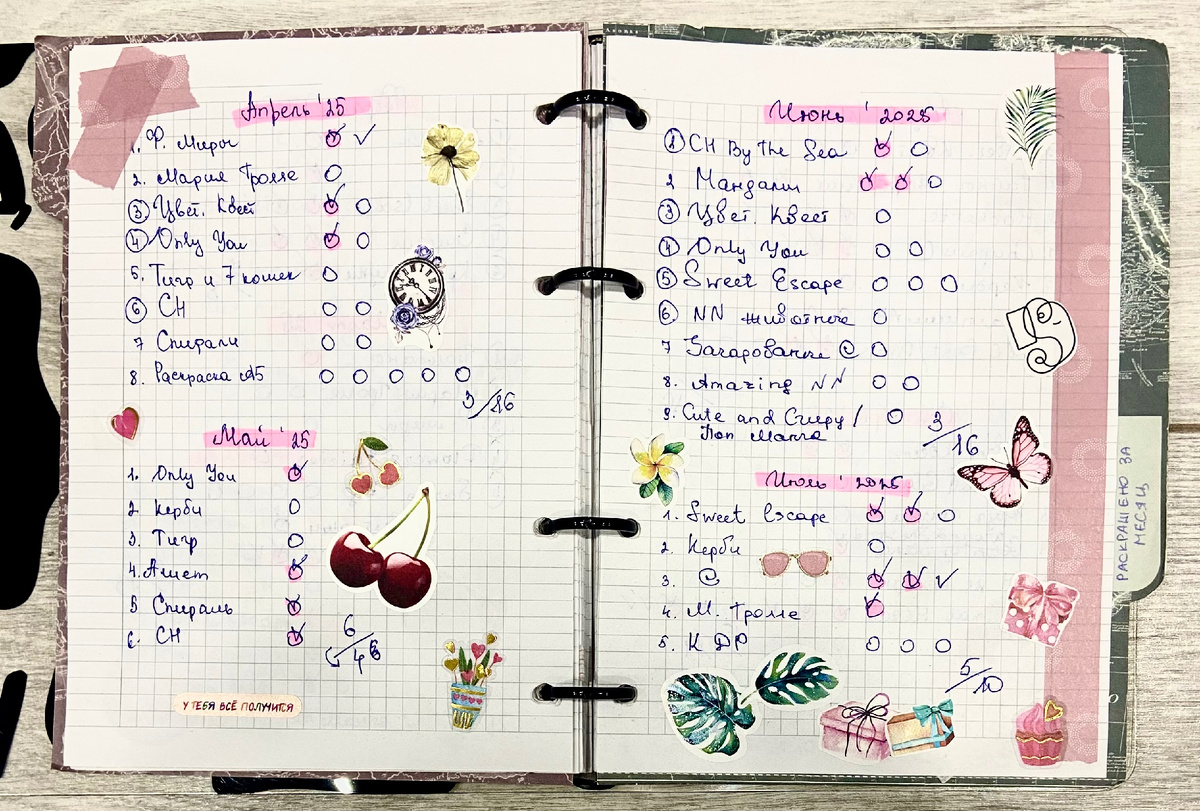 Апрель '25
1. Ф. Миры
2. Мария Тролле
3 Цвет. Квест
4 Only You
5. Тигр и 7 кошек
6 СН
7 Спирали
8. Раскраска А5
3/16
Май '25
1. Only You
2 Керби
3. Тигр
4.
5 Спираль
6. СН
6
У ТЕБЯ ВСЁ ПОЛУЧИТСЯ
Июнь '2025
1 СН By the Sea
2 Мандалы
3 Цвет. Квест
4 Only You
5 Sweet Escape
6. NN животные
7 Зачарованные @
8. Amazing NN
9. Cute and Creepy /
Поп Манга
3/16
Июль '2025
1. Sweet Escape
2. Керби
3. @
4. М. Тролле
5. К ДР
5/10
РАСКРАШЕНО ЗА
МЕСЯЦ